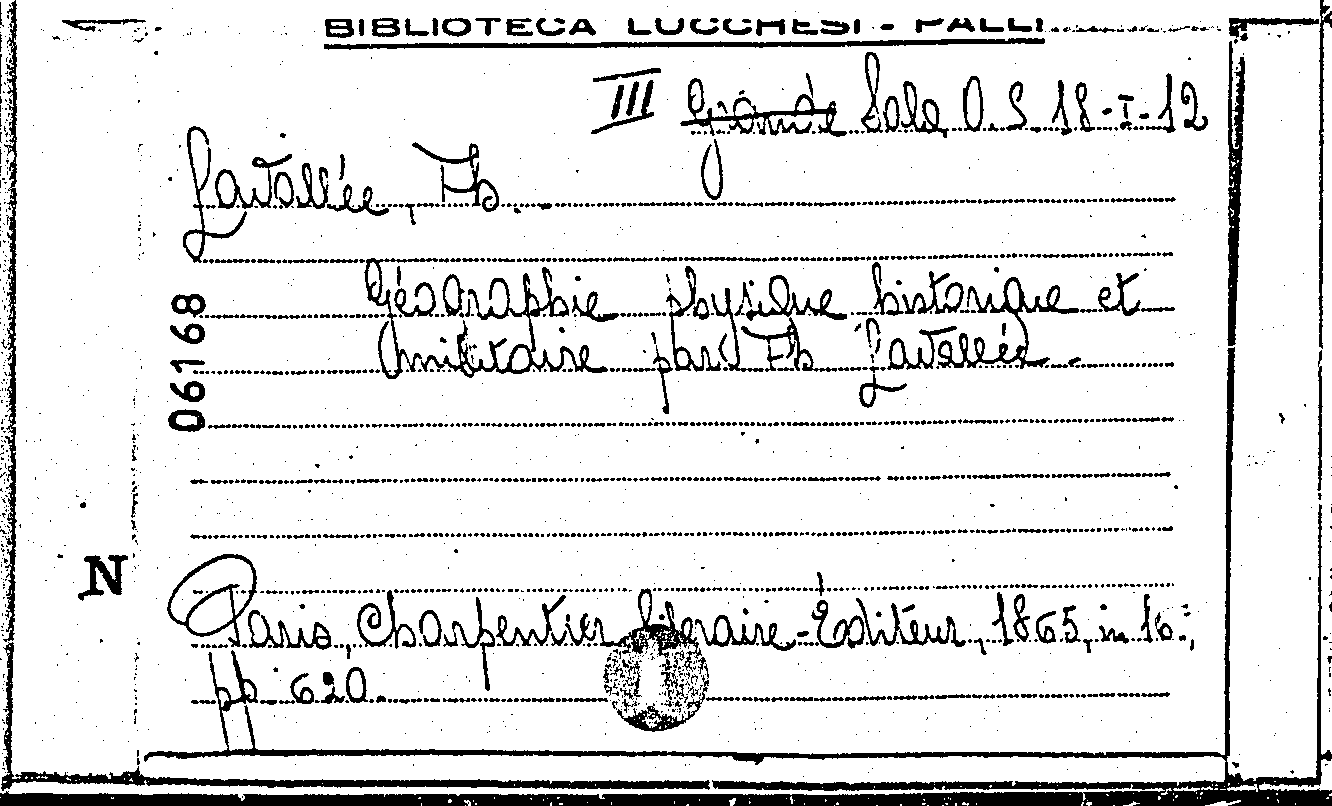 BIBLIOTECA LUCCHESI - PALLI
III Grande Sala O. S. 18-I-12
Lavallée, Th. -
Géographie physique historique et
militaire par Th Lavallée.
06168
N
Paris, Charpentier libraire-Éditeur, 1865, in 16.;
pp. 620.